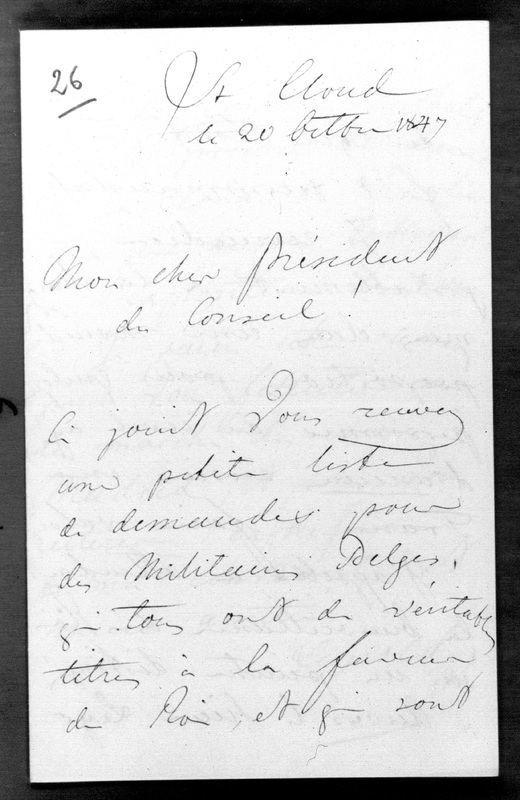 26
St Cloud
le 20 Octbre 1847
Mon cher Président
du Conseil !
Ci joint Vous
une petite liste
de demandes pour
des Militaires Belges,
qui tous ont de véritables
titres à la faveur
du Roi, et qui sont